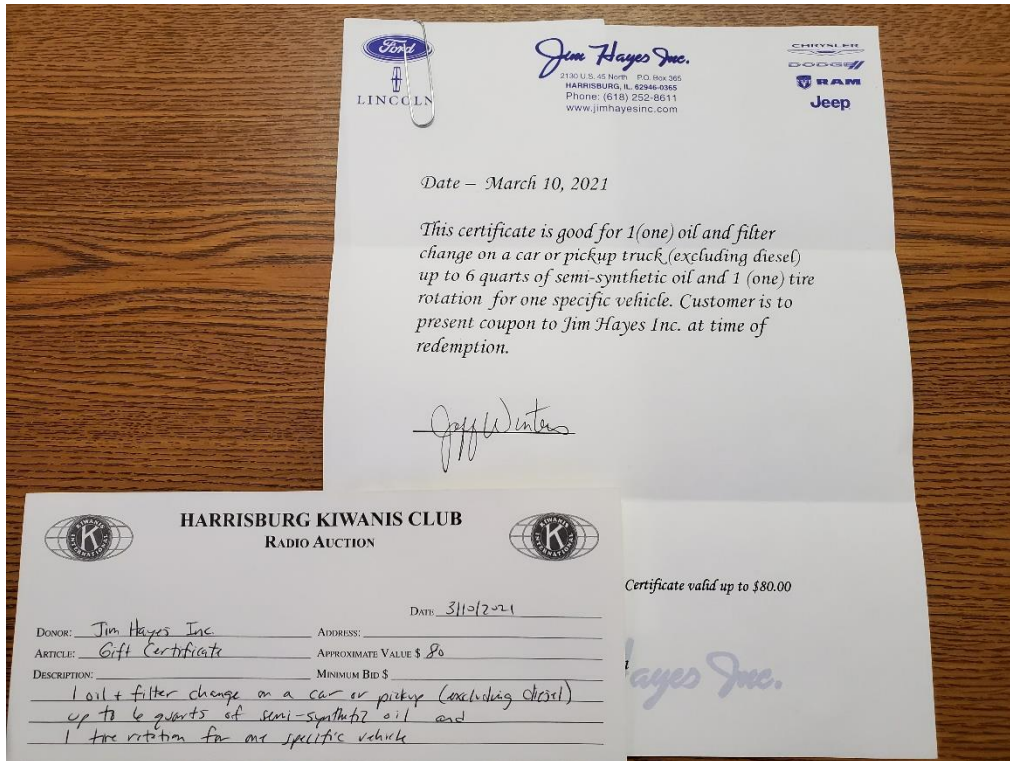 Ford
LINCOLN
Jim Hayes Inc.
2130 U.S. 45 North P.O. Box 365
HARRISBURG, IL. 62946-0365
Phone: (618) 252-8611
www.jimhayesinc.com
CHRYSLER
DODGE
RAM
Jeep
Date – March 10, 2021
This certificate is good for 1(one) oil and filter
change on a car or pickup truck (excluding diesel)
up to 6 quarts of semi-synthetic oil and 1 (one) tire
rotation for one specific vehicle. Customer is to
present coupon to Jim Hayes Inc. at time of
redemption.
Jeff Winters
Certificate valid up to $80.00
ayes Inc.
HARRISBURG KIWANIS CLUB
RADIO AUCTION
KIWANIS
K
INTERNATIONAL
KIWANIS
K
INTERNATIONAL
DATE 3/10/2021
DONOR: Jim Hayes Inc. ADDRESS:
ARTICLE: Gift Certificate APPROXIMATE VALUE $ 80
DESCRIPTION: MINIMUM BID $
1 oil + filter change on a car or pickup (excluding diesel)
up to 6 quarts of semi-synthetic oil and
1 tire rotation for one specific vehicle